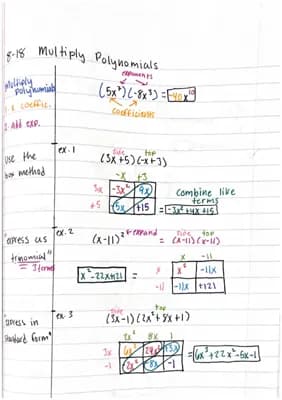 8-18 Multiply Polynomials
Multiply
Polynomials
exponents
(5x⁷)(-8x³) = -40x¹⁰
coefficients
1. x coeffic.
2. Add exp.
Use the
box method
ex. 1
side top
(3x+5)(-x+3)
-x +3
3x -3x² 9x
+5 -5x +15
combine like
terms
= -3x²+4x+15
"express as
trinomial"
= 3 terms
ex. 2
(x-11)² ← expand = (x-11)(x-11)
side top
x -11
x x² -11x
-11 -11x +121
x²-22x+121
"express in
standard form"
ex. 3
side top
(3x-1)(2x²+8x+1)
2x² 8x 1
3x 6x³ 24x² 3x
-1 -2x² -8x -1
= 6x³+22x²-5x-1